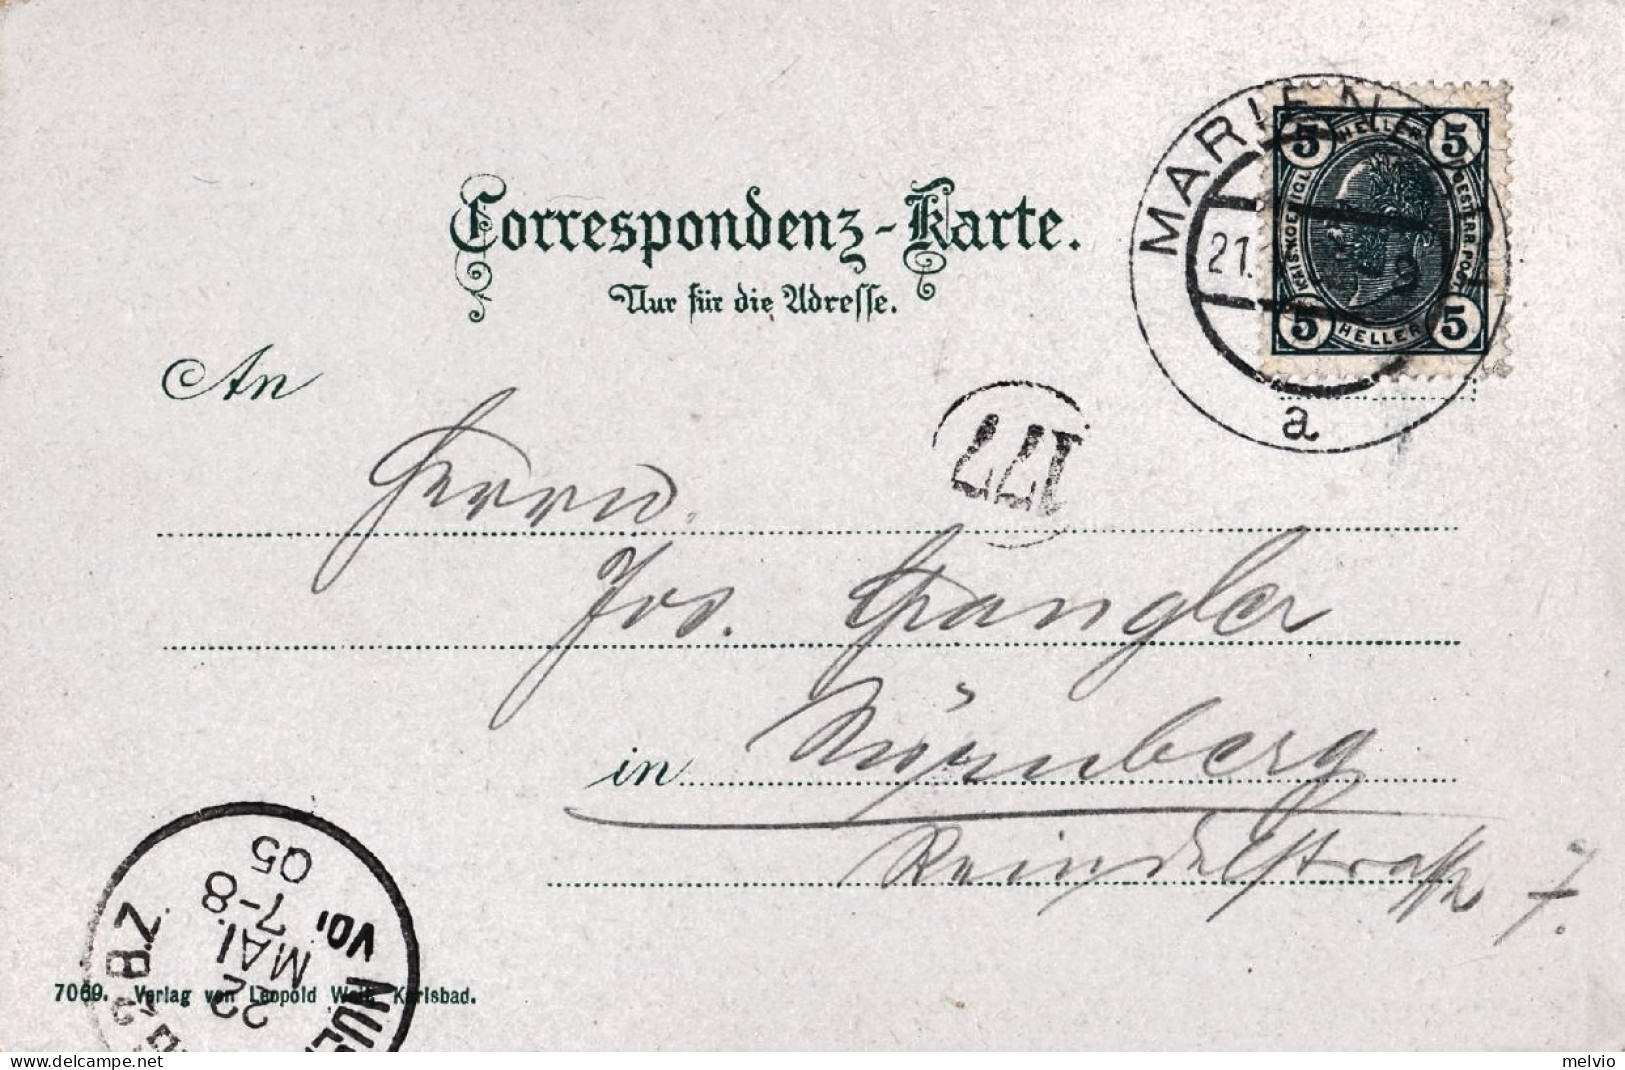 Correspondenz-Karte.
Nur für die Adresse.
MARIEN
21.
a
5 HELLER 5
KAIS. KOENIGL. OESTERR. POST.
5 HELLER 5
An
177
Herrn
Jos. Gangler
in Nürnberg
Reindelstraße 7.
NUE
22
MAI.
7-8
VOR
05
2 B.Z.
7069. Verlag von Leopold Weil, Karlsbad.
delcampe.net
melvio